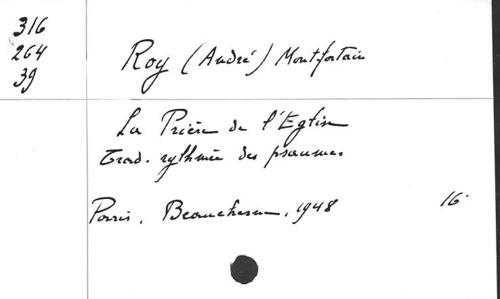 316
264
39
Roy (André) Montfortain
La Prière de l'Eglise
Trad. rythmée des psaumes
Paris, Beauchesne, 1948 16°